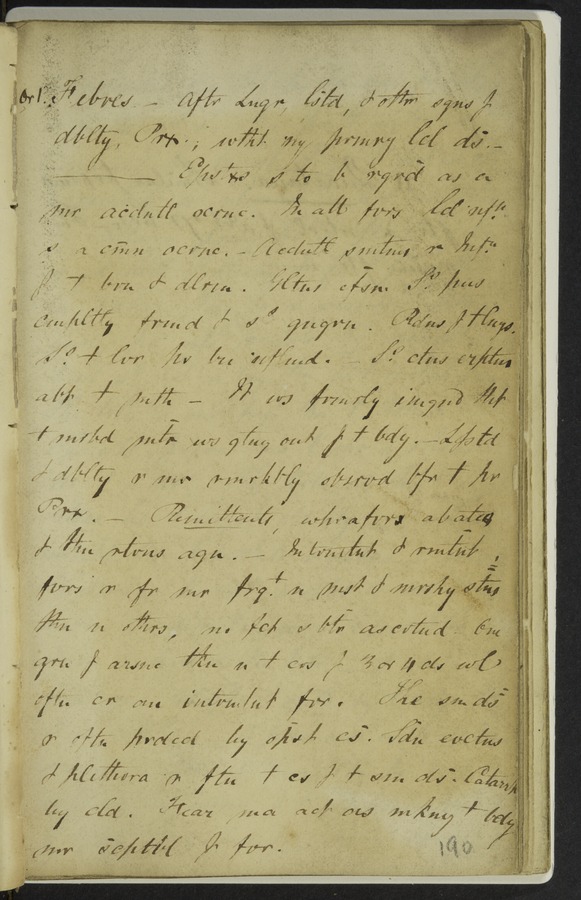 Or 1. Febres – Aftr Lngr, lstd, & othr sgns f
dblty, Prx.; wtht ny prmry lcl ds. –
Epstxs s to b rgrd as a
mr acdntl ocrnc. In all fvrs lcl nfn
s a cmn ocrnc. – Acdntl smtms r
f + brn & dlrm. So pus
cmpltly frmd & so gngrn. f + lngs.
So + lvr hs bn nflmd. – So ctns erptns
abt + mth – It ws frmrly imgnd tht
+ mrbd mtr ws gng out f + bdy. – Lpstd
& dblty r ms rmrkbly obsrvd bfr + hr
Prx. – Remittents, whrafvrs abates
& thn rtrns agn. – Intrmtnt & rmtnt
fvrs r fr mr frqt n mst & mrshy stns
thn n othrs, ns fct s btr ascrtnd. One
grn f arsnc thn n + crs f 3 or 4 ds wl
oftn cr an intrmtnt fvr. The sm ds
r oftn prdcd by opst cs. Sdn evctns
& plethora r ftn + cs f + sm ds. Catarrh
by cld. Fear ma act as mkng + bdy
mr scptbl f fvr.
190